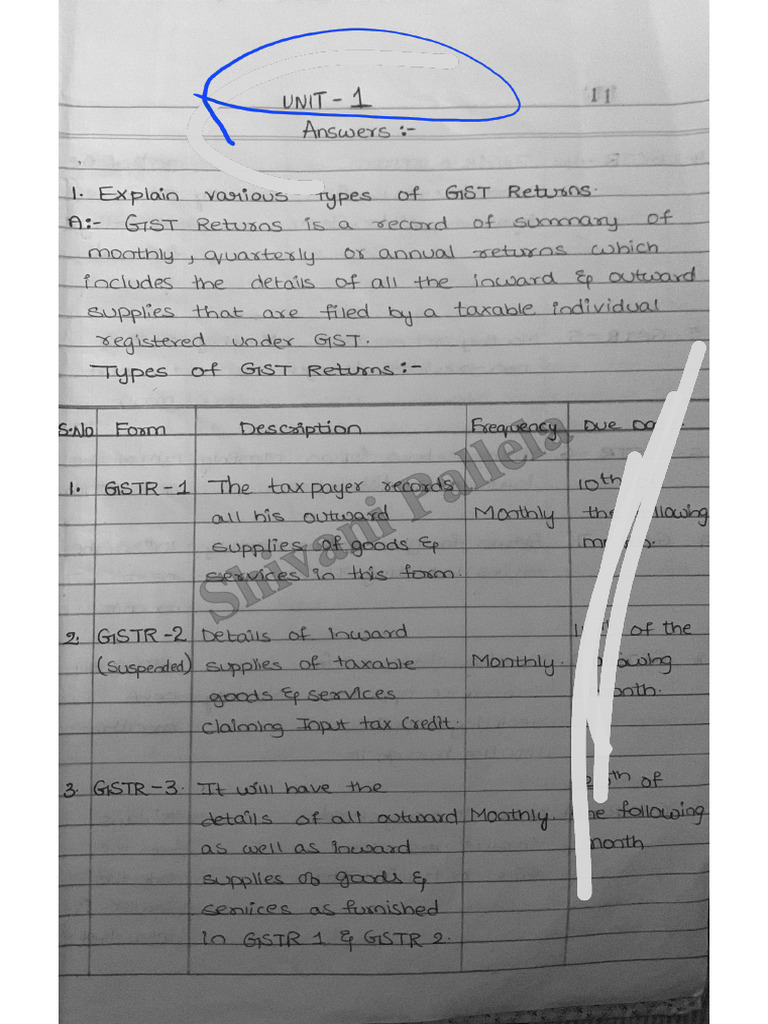 UNIT - 1
11
Answers :-
1. Explain various Types of GST Returns.
A:- GST Returns is a record of summary of
monthly, quarterly or annual returns which
includes the details of all the inward & outward
supplies that are filed by a taxable individual
registered under GST.
Types of GST Returns :-
S.No Form Description Frequency Due
1. GSTR - 1 The tax payer records 10th
all his outward Monthly
supplies of goods &
services in this form.
2. GSTR - 2 Details of Inward of the
(Suspended) supplies of taxable Monthly.
goods & services
claiming Input tax Credit.
3. GSTR - 3. It will have the of
details of all outward Monthly. following
as well as inward month
supplies of goods &
services as furnished
in GSTR 1 & GSTR 2.
Shivani Pallela